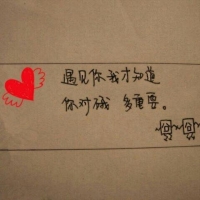 遇见你我才知道
你对我 多重要。